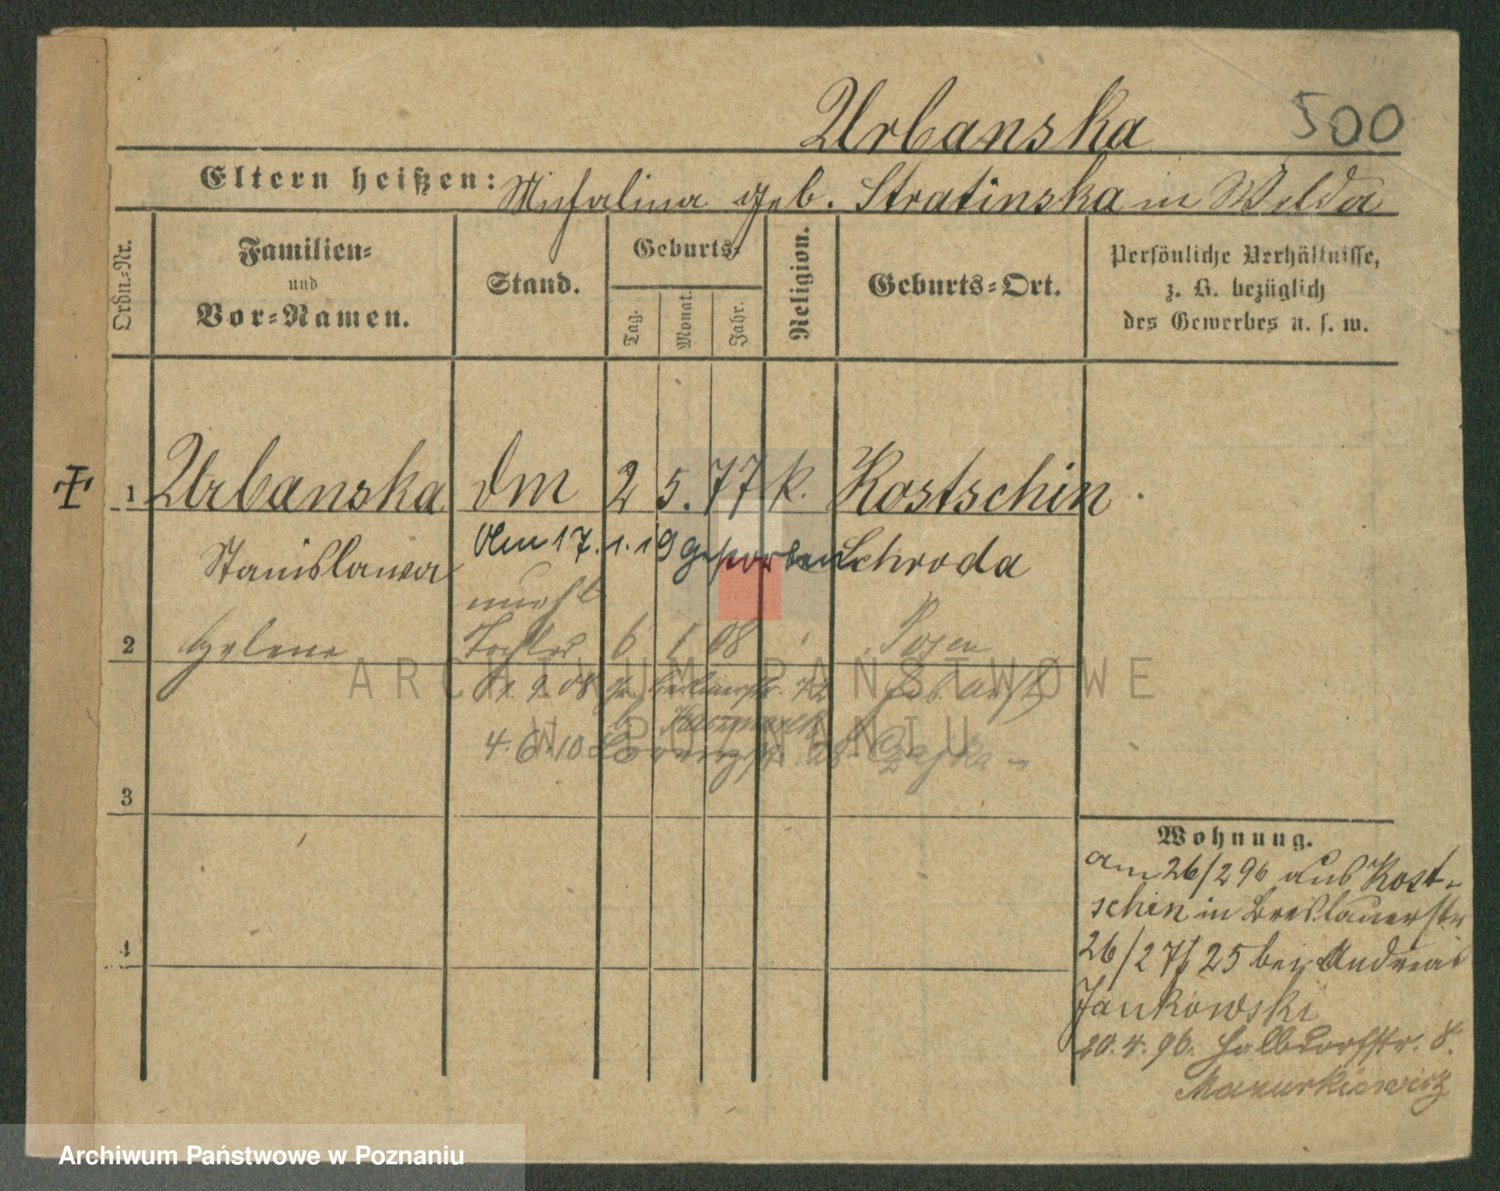 Urbanska 500
Eltern heißen: Michalina geb. Stratinska in Wilda
Ordn.-Nr.
Familien- und Vor-Namen.
Stand.
Geburts-
Tag. Monat. Jahr.
Religion.
Geburts-Ort.
Persönliche Verhältnisse, z. B. bezüglich des Gewerbes u. s. w.
1 Urbanska dm 2 5. 77 k. Kostschin
Stanislawa Am 17.1.19 gestorben Schroda
unehl
2 Helene Tochter 6 1 08 Posen
9. 08 72
4. 6. 10 28 Czajka
3
4
Wohnung.
am 26/2 96 aus Kost-
schin in Breslauerstr
26/27 25 bei Andreas
Jankowski
20. 4. 96. Halbdorfstr. 8.
Mazurkiewicz
ARCHIWUM PAŃSTWOWE
W POZNANIU
Archiwum Państwowe w Poznaniu